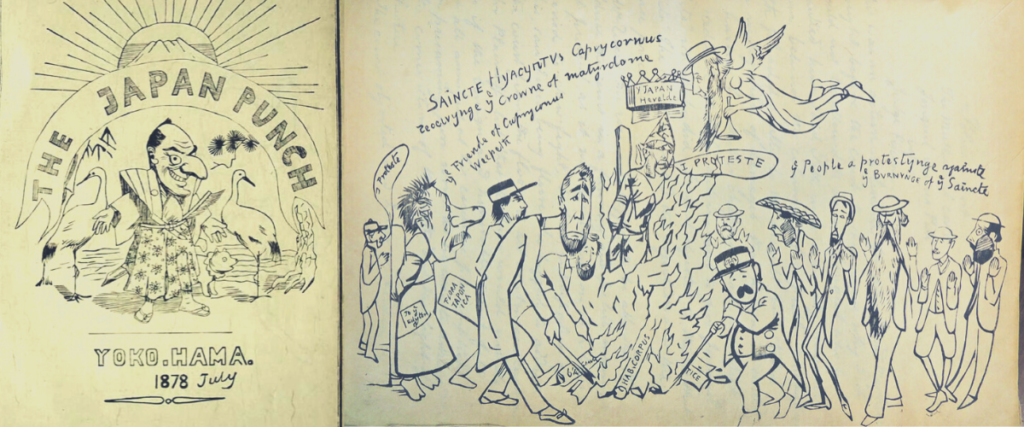 THE JAPAN PUNCH
YOKO.HAMA.
1878 July
SAINCTE HYACYNTVS Caprycornus
receevynge yͤ Crowne of matyrdome
yͤ Friends of Caprycornus
Weepeth
Y JAPAN
Herald
I PROTESTE
yͤ People a protestynge againste
yͤ BURNYNGE of yͤ Saincte
HAB.CORPUS